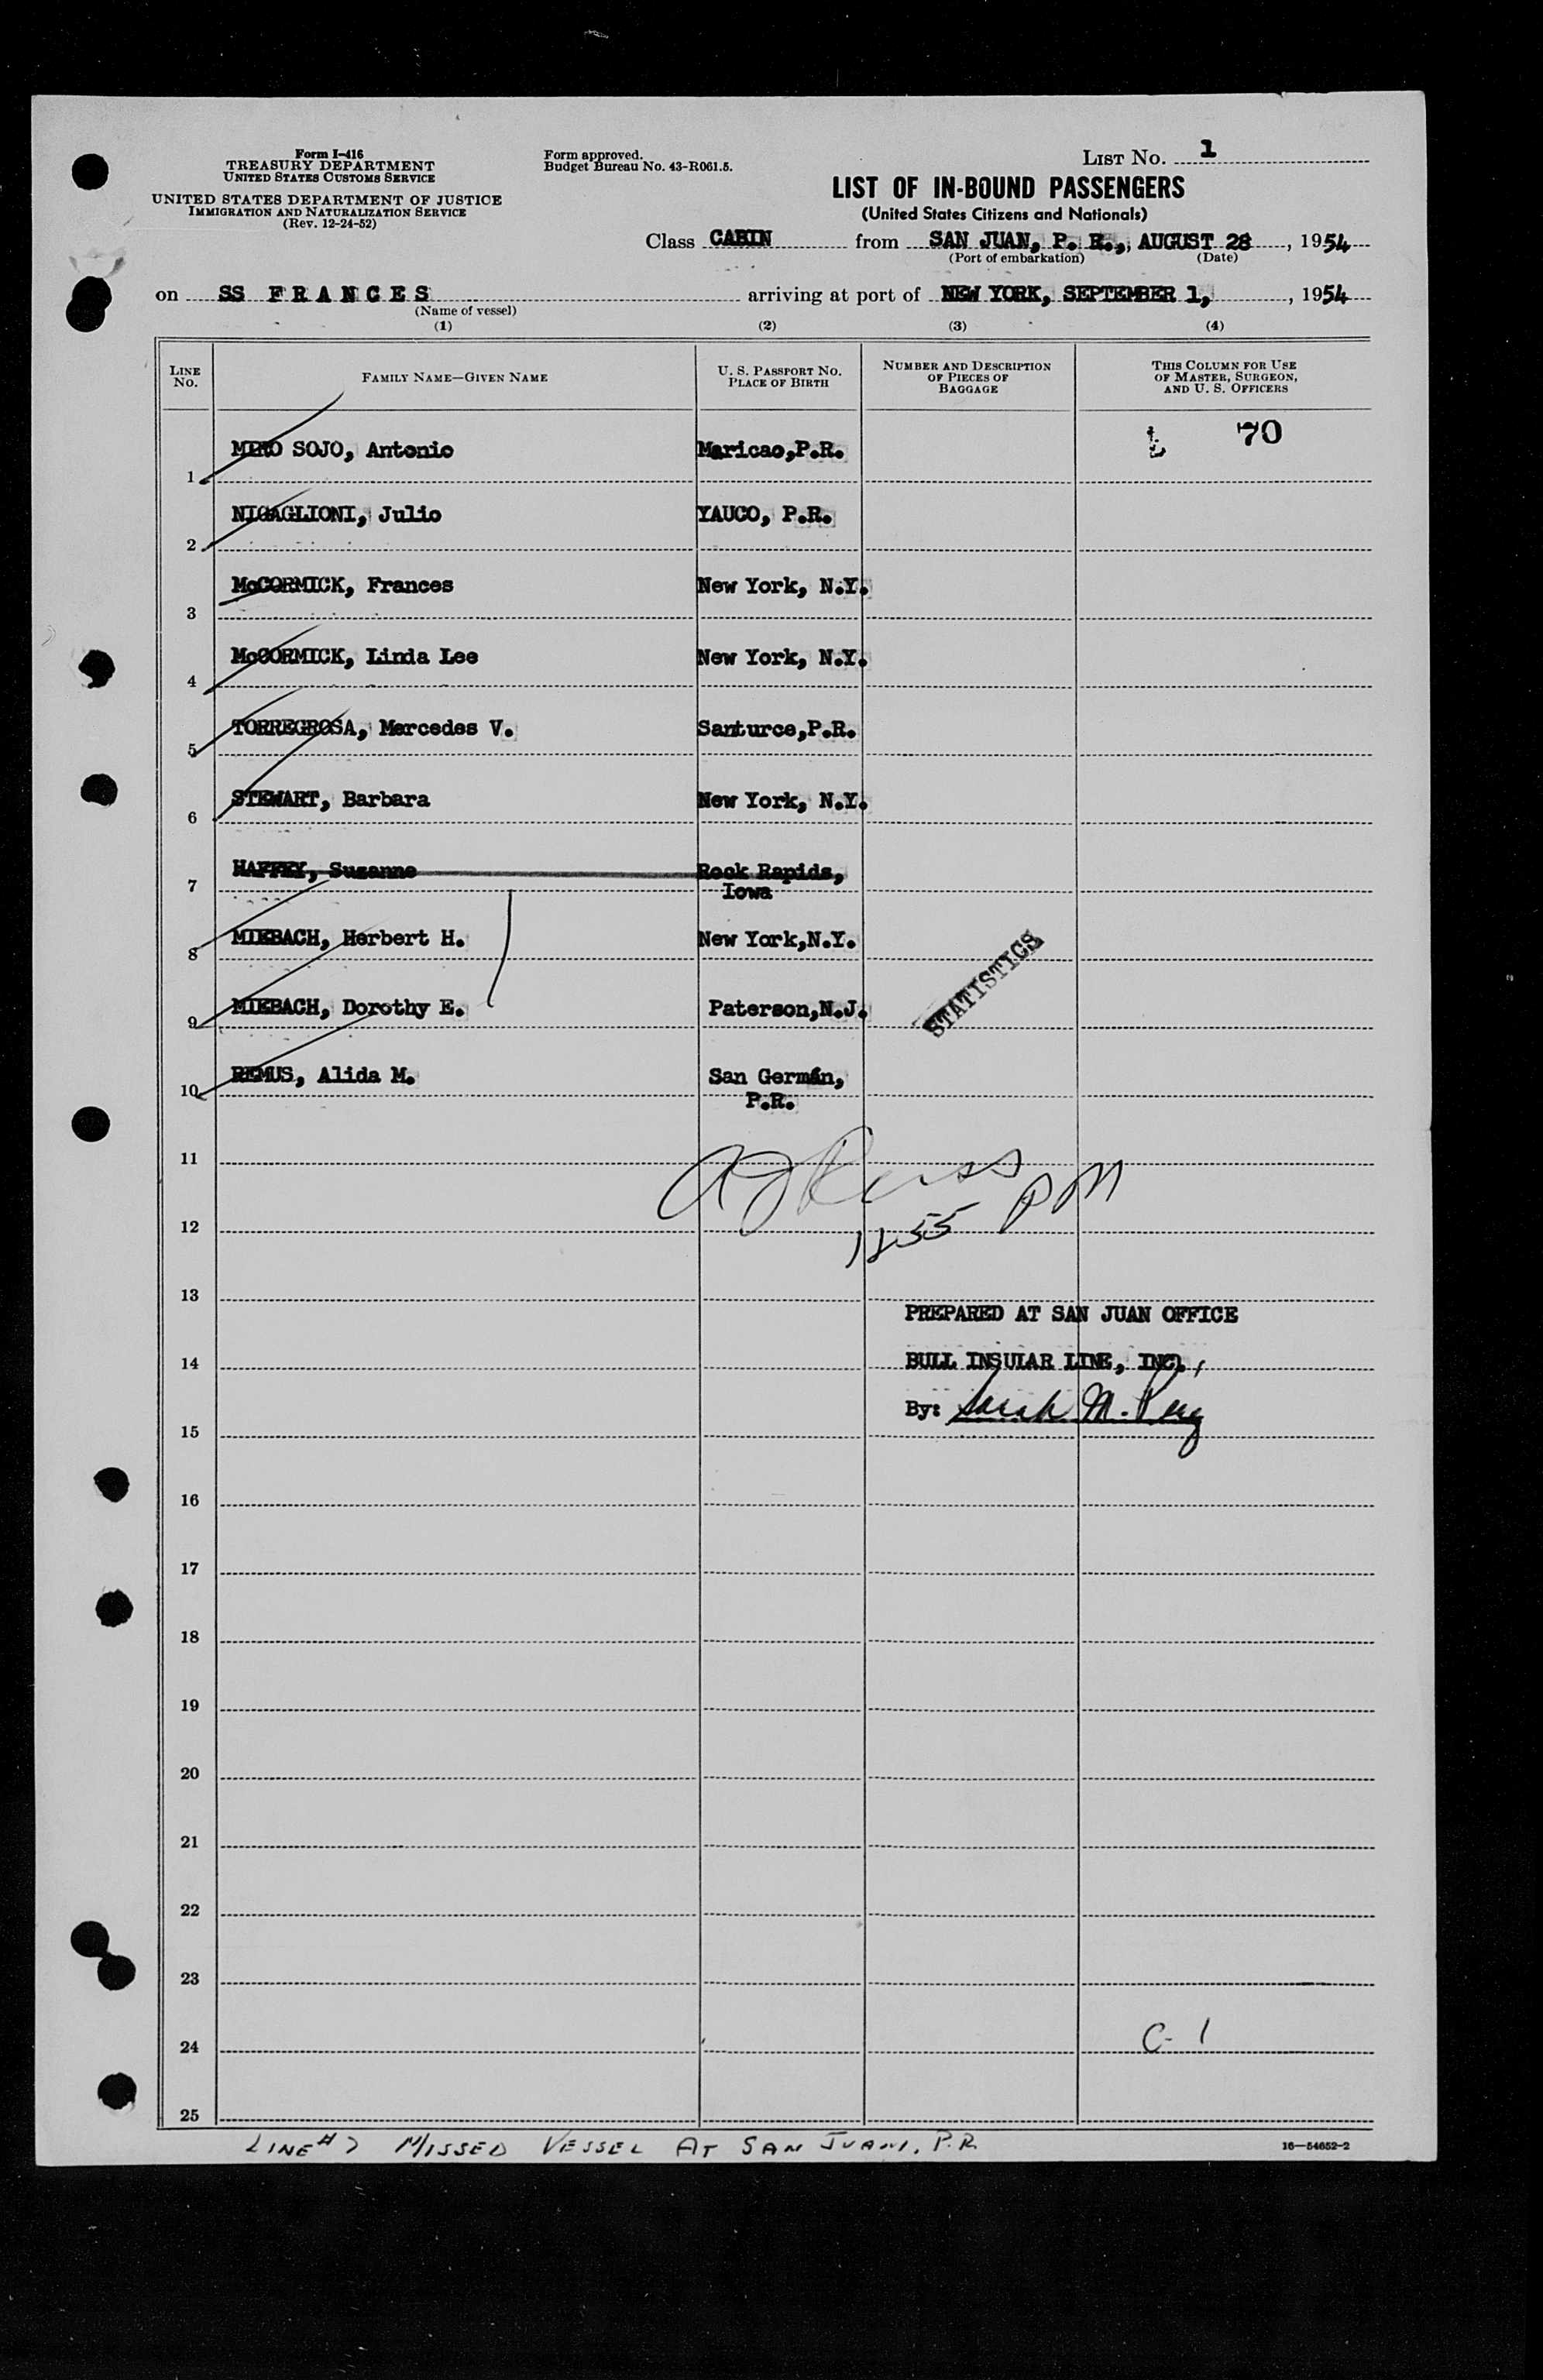 Form I-416
TREASURY DEPARTMENT
UNITED STATES CUSTOMS SERVICE
UNITED STATES DEPARTMENT OF JUSTICE
IMMIGRATION AND NATURALIZATION SERVICE
(Rev. 12-24-52)
Form approved.
Budget Bureau No. 43-R061.5.
LIST No. 1
LIST OF IN-BOUND PASSENGERS
(United States Citizens and Nationals)
Class CABIN from SAN JUAN, P. R., AUGUST 28, 1954
(Port of embarkation) (Date)
on SS FRANCES arriving at port of NEW YORK, SEPTEMBER 1, 1954
(Name of vessel)
(1) (2) (3) (4)
LINE NO. FAMILY NAME—GIVEN NAME U. S. PASSPORT NO. PLACE OF BIRTH NUMBER AND DESCRIPTION OF PIECES OF BAGGAGE THIS COLUMN FOR USE OF MASTER, SURGEON, AND U. S. OFFICERS
70
1 MIRO SOJO, Antonio Maricao,P.R.
2 NIGAGLIONI, Julio YAUCO, P.R.
3 McCORMICK, Frances New York, N.Y.
4 McCORMICK, Linda Lee New York, N.Y.
5 TORREGROSA, Mercedes V. Santurce,P.R.
6 STEWART, Barbara New York, N.Y.
7 HAFFEY, Suzanne Rock Rapids,
Iowa
8 MIEBACH, Herbert H. New York,N.Y.
9 MIEBACH, Dorothy E. Paterson,N.J.
STATISTICS
10 REMUS, Alida M. San Germán,
P.R.
11
12
1255 PM
13
PREPARED AT SAN JUAN OFFICE
14 BULL INSULAR LINE, INC.,
By: Sarah M.
15
16
17
18
19
20
21
22
23
24 C-1
25
LINE # 7 MISSED VESSEL AT SAN JUAN, P.R.
16—54652-2